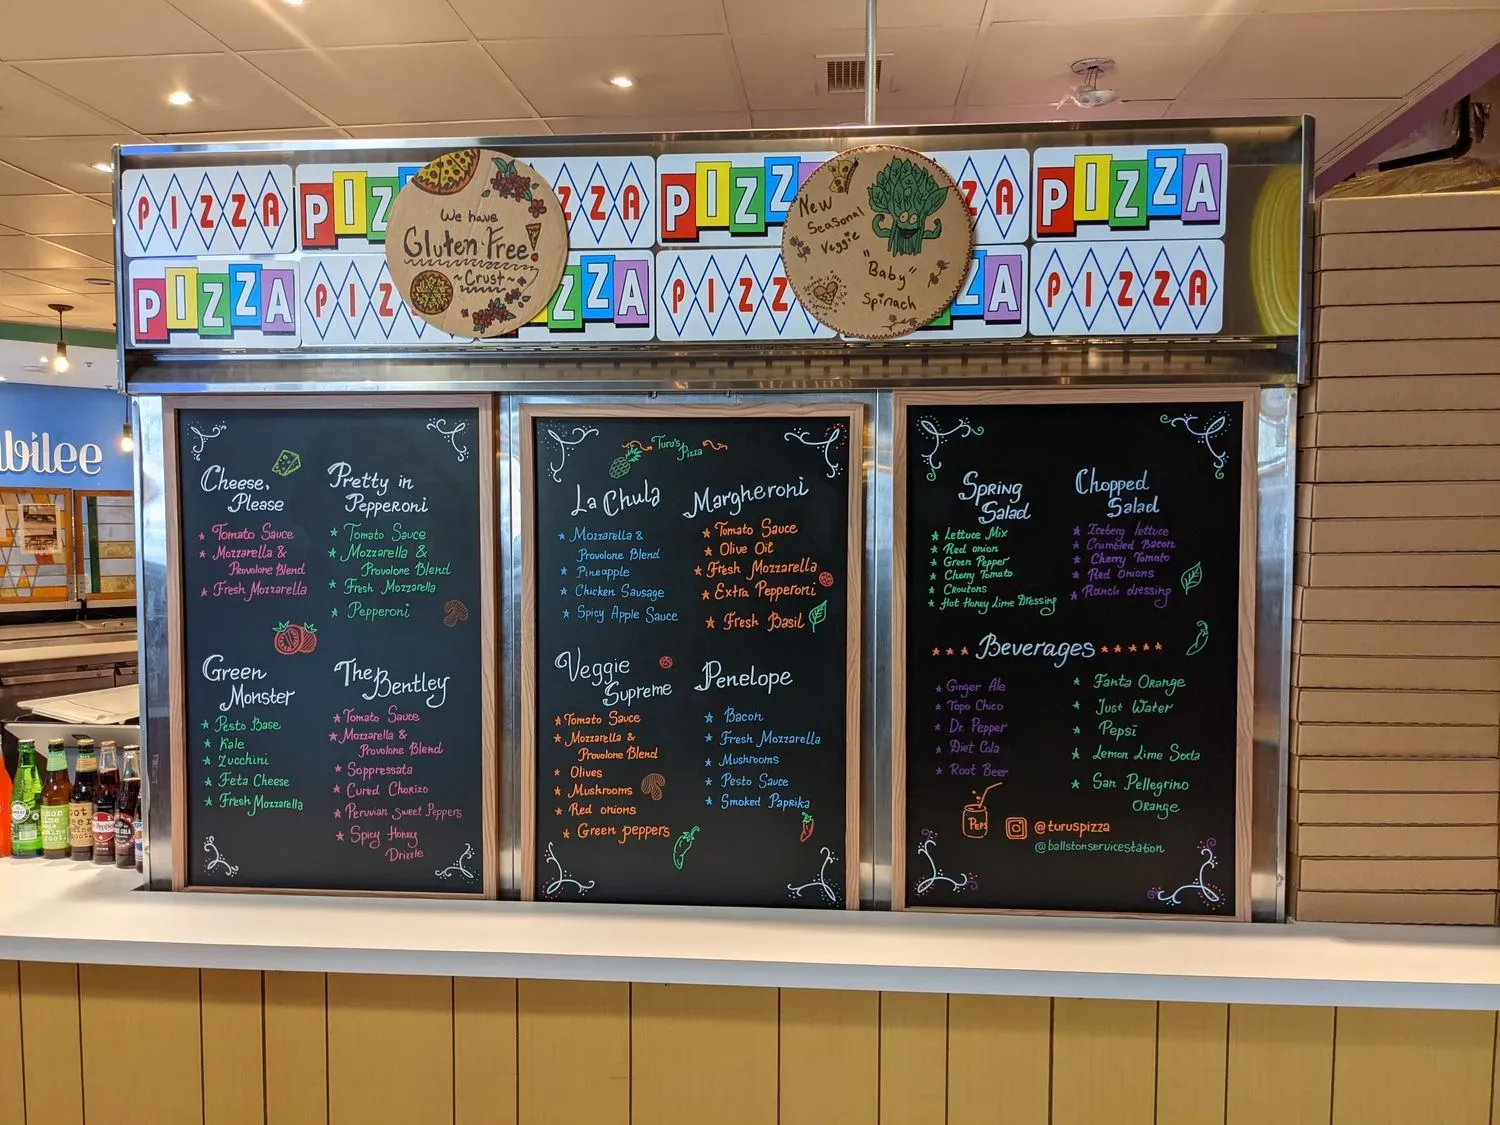 PIZZA
PIZ
ZZA
PIZZ
ZA
PIZZA
PIZZA
PIZ
ZZA
PIZZ
ZA
PIZZA
We have
Gluten Free!
~Crust~
New
Seasonal
Veggie
"Baby"
Spinach
bilee
Cheese,
Please
★ Tomato Sauce
★ Mozzarella &
Provolone Blend
★ Fresh Mozzarella
Pretty in
Pepperoni
★ Tomato Sauce
★ Mozzarella &
Provolone Blend
★ Fresh Mozzarella
★ Pepperoni
Green
Monster
★ Pesto Base
★ Kale
★ Zucchini
★ Feta Cheese
★ Fresh Mozzarella
The Bentley
★ Tomato Sauce
★ Mozzarella &
Provolone Blend
★ Soppressata
★ Cured Chorizo
★ Peruvian Sweet Peppers
★ Spicy Honey
Drizzle
Turu's
Pizza
La Chula
★ Mozzarella &
Provolone Blend
★ Pineapple
★ Chicken Sausage
★ Spicy Apple Sauce
Margheroni
★ Tomato Sauce
★ Olive Oil
★ Fresh Mozzarella
★ Extra Pepperoni
★ Fresh Basil
Veggie
Supreme
★ Tomato Sauce
★ Mozzarella &
Provolone Blend
★ Olives
★ Mushrooms
★ Red onions
★ Green peppers
Penelope
★ Bacon
★ Fresh Mozzarella
★ Mushrooms
★ Pesto Sauce
★ Smoked Paprika
Spring
Salad
★ Lettuce Mix
★ Red onion
★ Green Pepper
★ Cherry Tomato
★ Croutons
★ Hot Honey Lime Dressing
Chopped
Salad
★ Iceberg lettuce
★ Crumbled Bacon
★ Cherry Tomato
★ Red Onions
★ Ranch dressing
★ ★ ★ Beverages ★ ★ ★ ★ ★
★ Ginger Ale
★ Topo Chico
★ Dr. Pepper
★ Diet Cola
★ Root Beer
★ Fanta Orange
★ Just Water
★ Pepsi
★ Lemon Lime Soda
★ San Pellegrino
Orange
Peps
@turuspizza
@ballstonservicestation